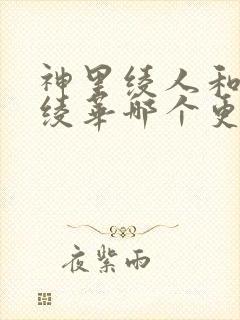 神里绫人和
绫华哪个更
夜紫雨